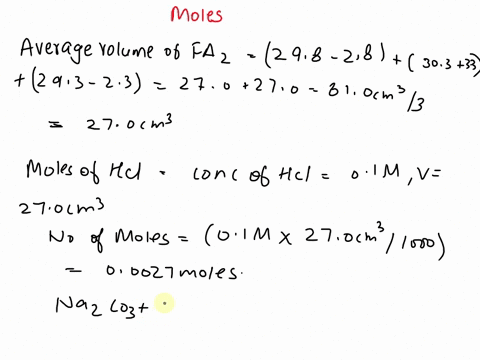 Moles
Average volume of FA2 = (29.8-2.8) + (30.3+33)
+ (29.3-2.3) = 27.0+27.0 = 81.0cm³/3
= 27.0cm³
Moles of Hcl = conc of Hcl = 0.1M, V=
27.0cm³
No of Moles = (0.1M x 27.0cm³/1000)
= 0.0027moles.
Na2 CO3+